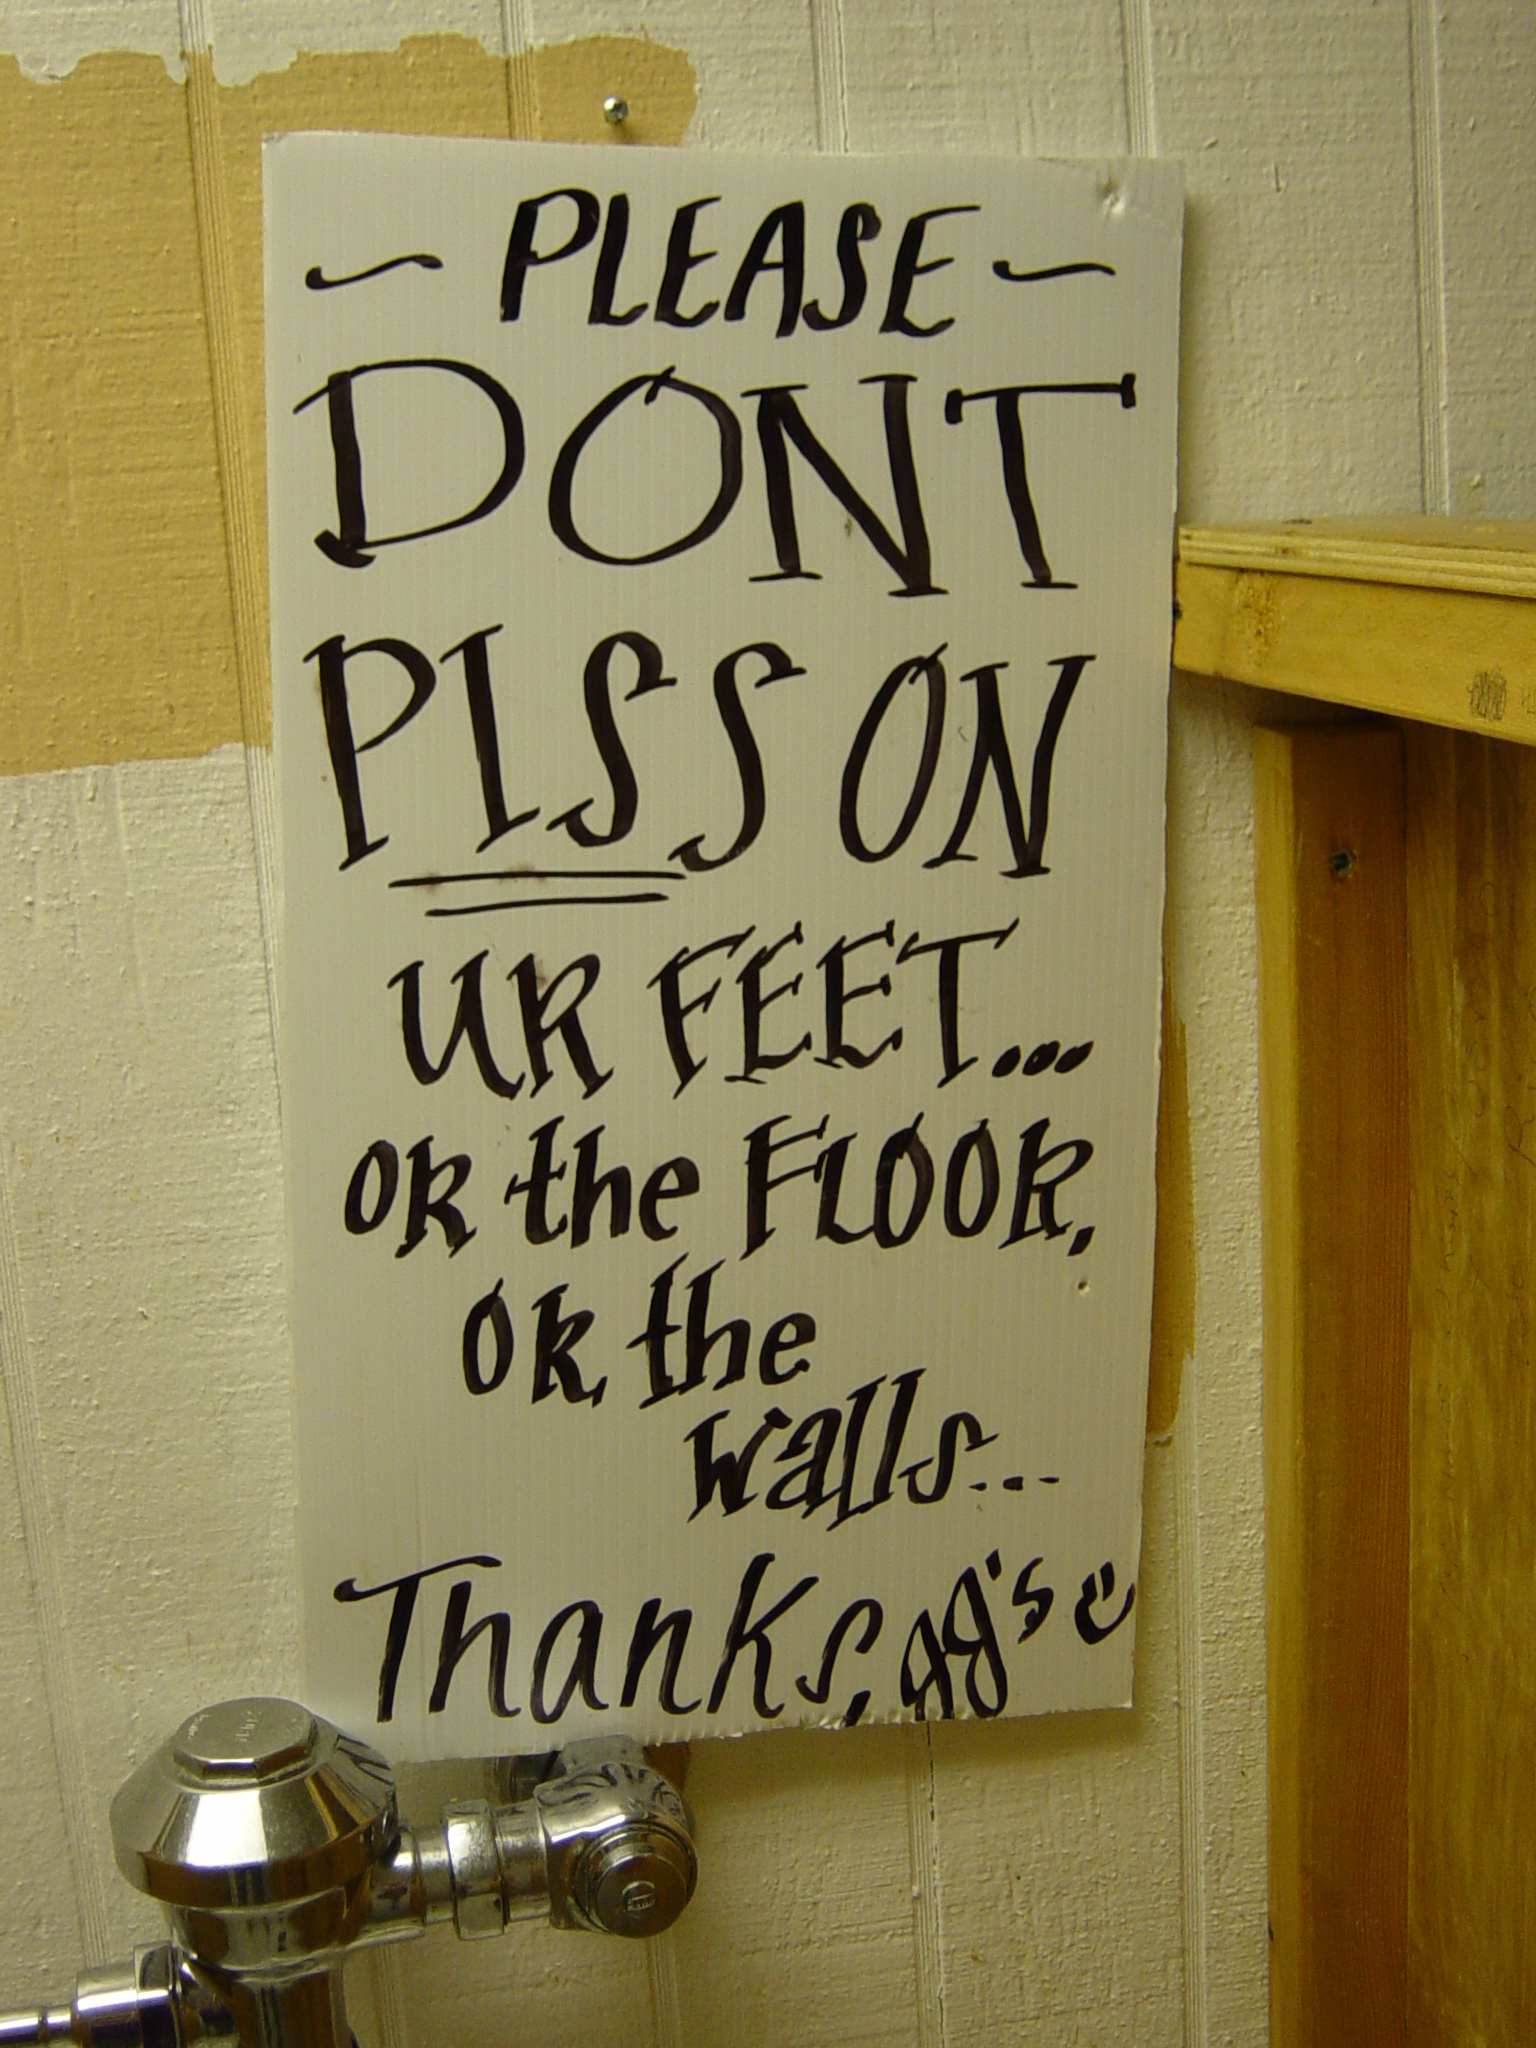 ~ PLEASE ~
DONT
PISS ON
UR FEET...
OR the FLOOR,
OR, the
walls...
Thanks, AG's